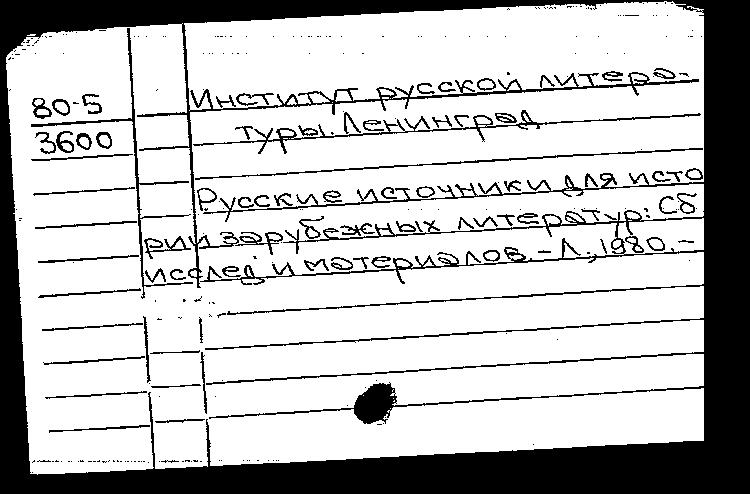 80-5
3600
Институт русской литера-
туры. Ленинград
Русские источники для исто
рии зарубежных литератур: Сб
исслед и материалов. - Л., 1980. -